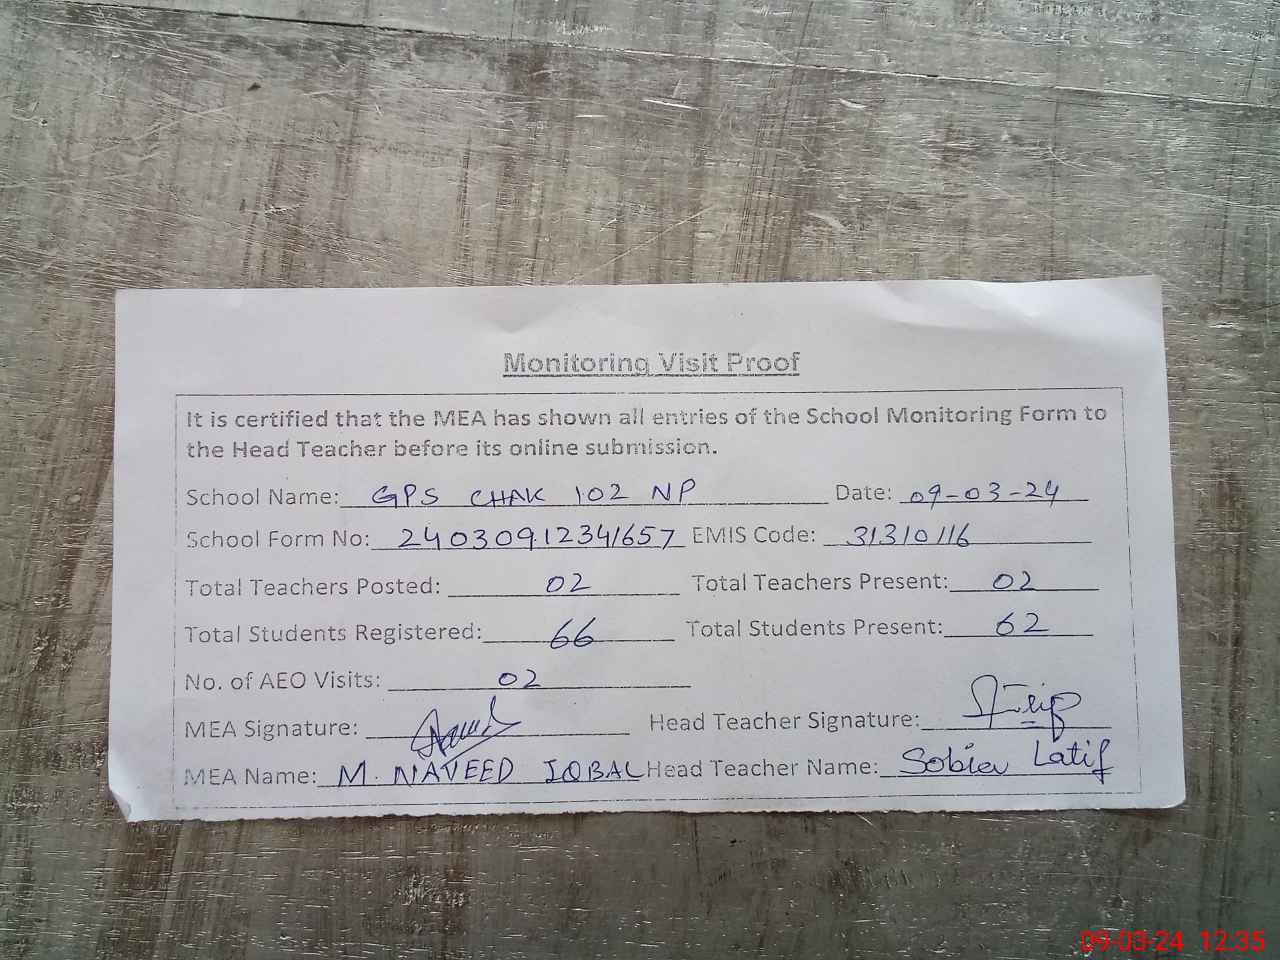 Monitoring Visit Proof
It is certified that the MEA has shown all entries of the School Monitoring Form to
the Head Teacher before its online submission.
School Name: GPS CHAK 102 NP Date: 09-03-24
School Form No: 24030912341657 EMIS Code: 31310116
Total Teachers Posted: 02 Total Teachers Present: 02
Total Students Registered: 66 Total Students Present: 62
No. of AEO Visits: 02
MEA Signature: Head Teacher Signature:
MEA Name: M. NAVEED IQBAL Head Teacher Name: Sobia Latif
09-03-24 12:35